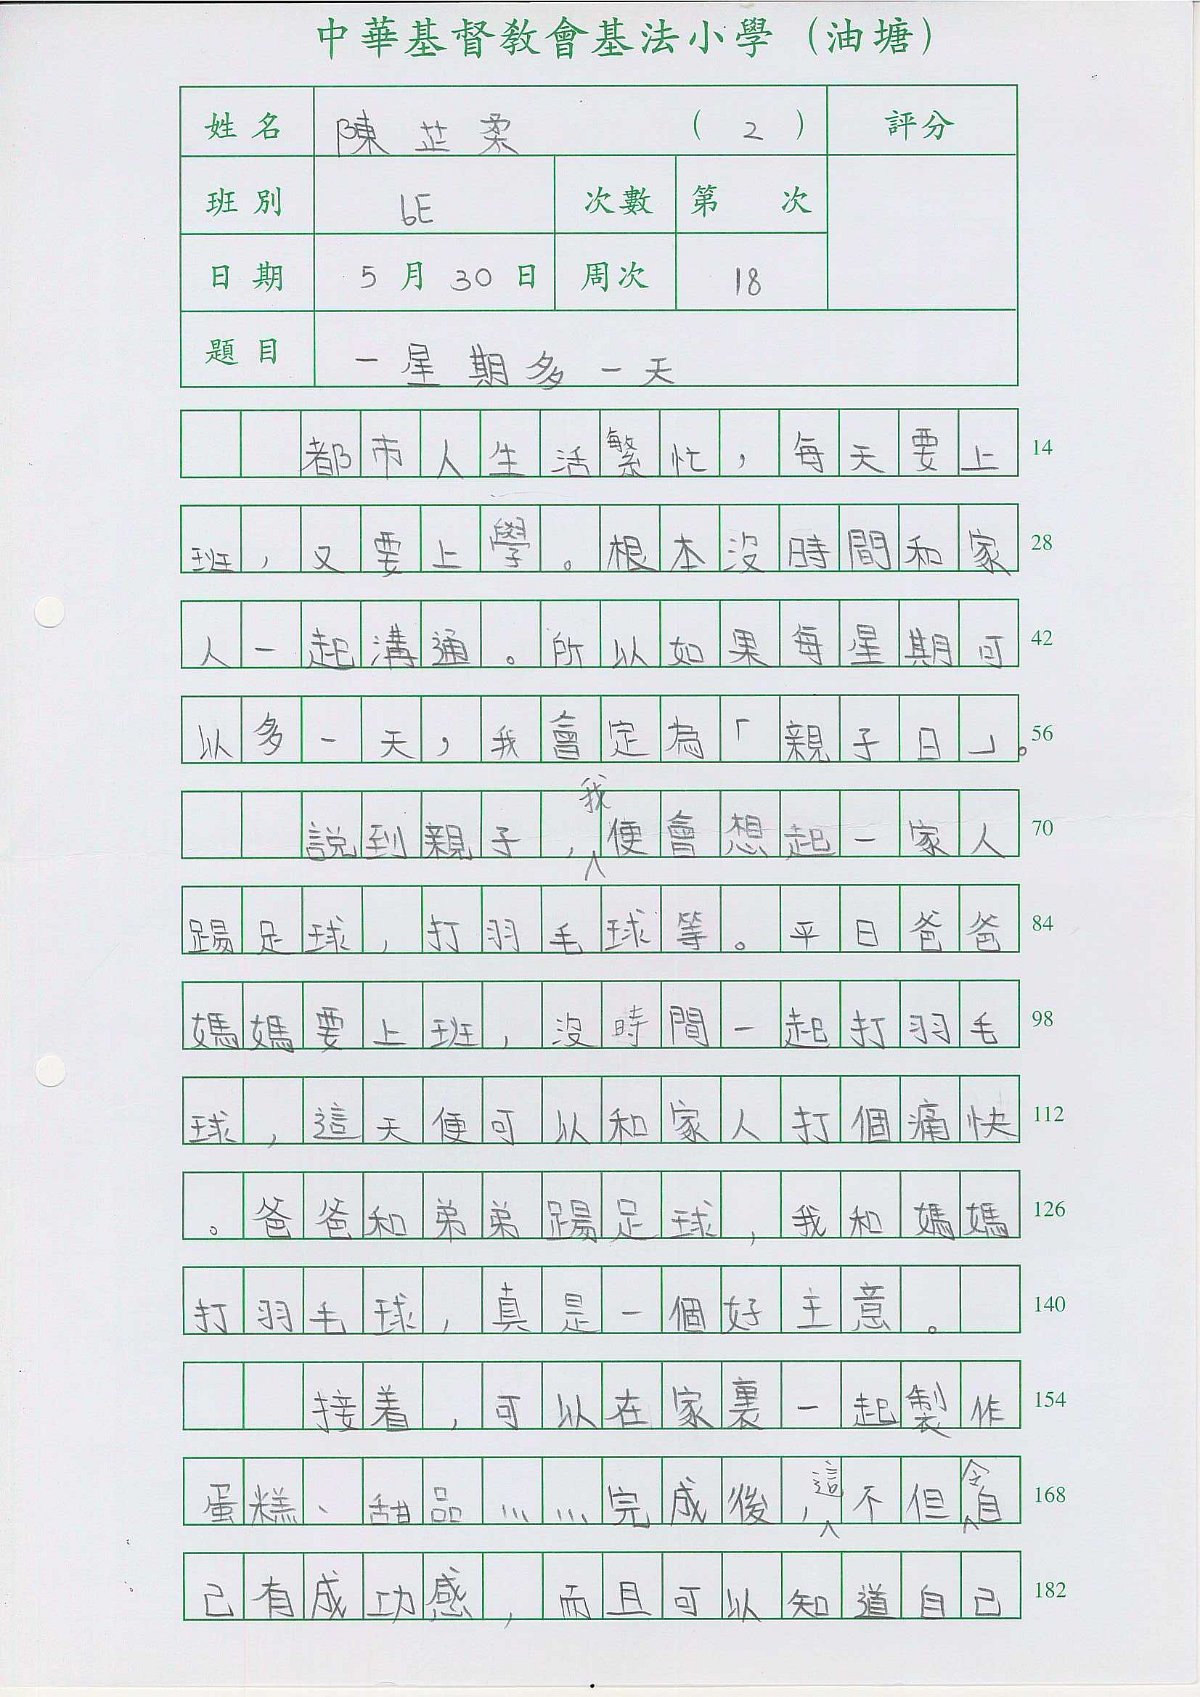 中華基督教會基法小學（油塘）
姓名 陳芷柔 （2） 評分
班別 6E 次數 第 次
日期 5月30日 周次 18
題目 一星期多一天
都市人生活繁忙，每天要上 14
班，又要上學。根本沒時間和家 28
人一起溝通。所以如果每星期可 42
以多一天，我會定為「親子日」。 56
說到親子，我便會想起一家人 70
踢足球，打羽毛球等。平日爸爸 84
媽媽要上班，沒時間一起打羽毛 98
球，這天便可以和家人打個痛快 112
。爸爸和弟弟踢足球，我和媽媽 126
打羽毛球，真是一個好主意。 140
接着，可以在家裏一起製作 154
蛋糕、甜品……完成後，這不但令自 168
己有成功感，而且可以知道自己 182